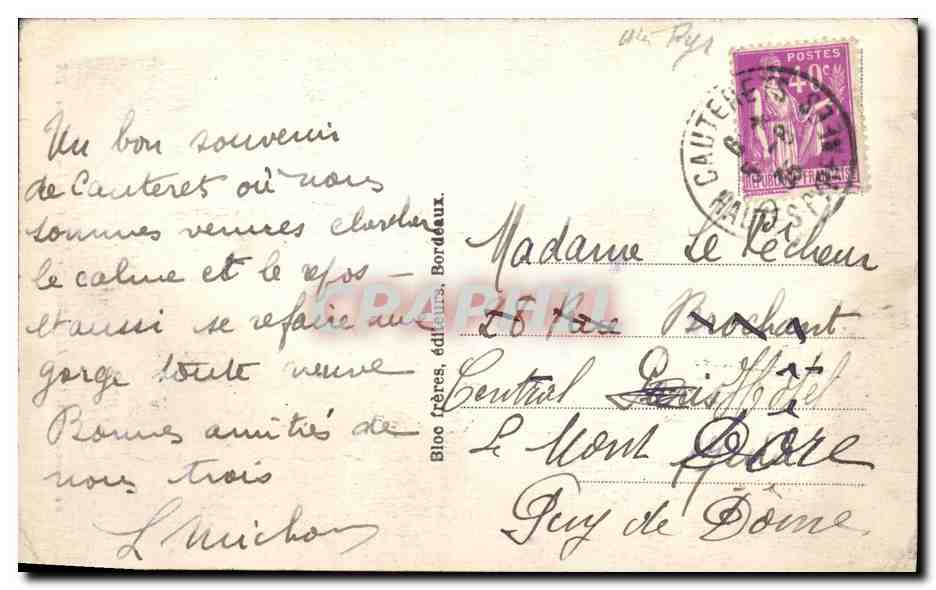 Un bon souvenir
de Cauteret où nous
sommes venues chercher
le calme et le repos —
et aussi se refaire une
gorge toute neuve
Bonnes amitiés de
nous trois
L Michon
Bloc frères, éditeurs, Bordeaux.
Htes Pyr
POSTES
40c
REPUBLIQUE FRANÇAISE
CAUTERETS
HAUTES PYRÉNÉES
Madame Le Pécheur
26 Rue Brochant
Central Paris Hôtel
Le Mont Dore
Puy de Dôme
CPAPHIL